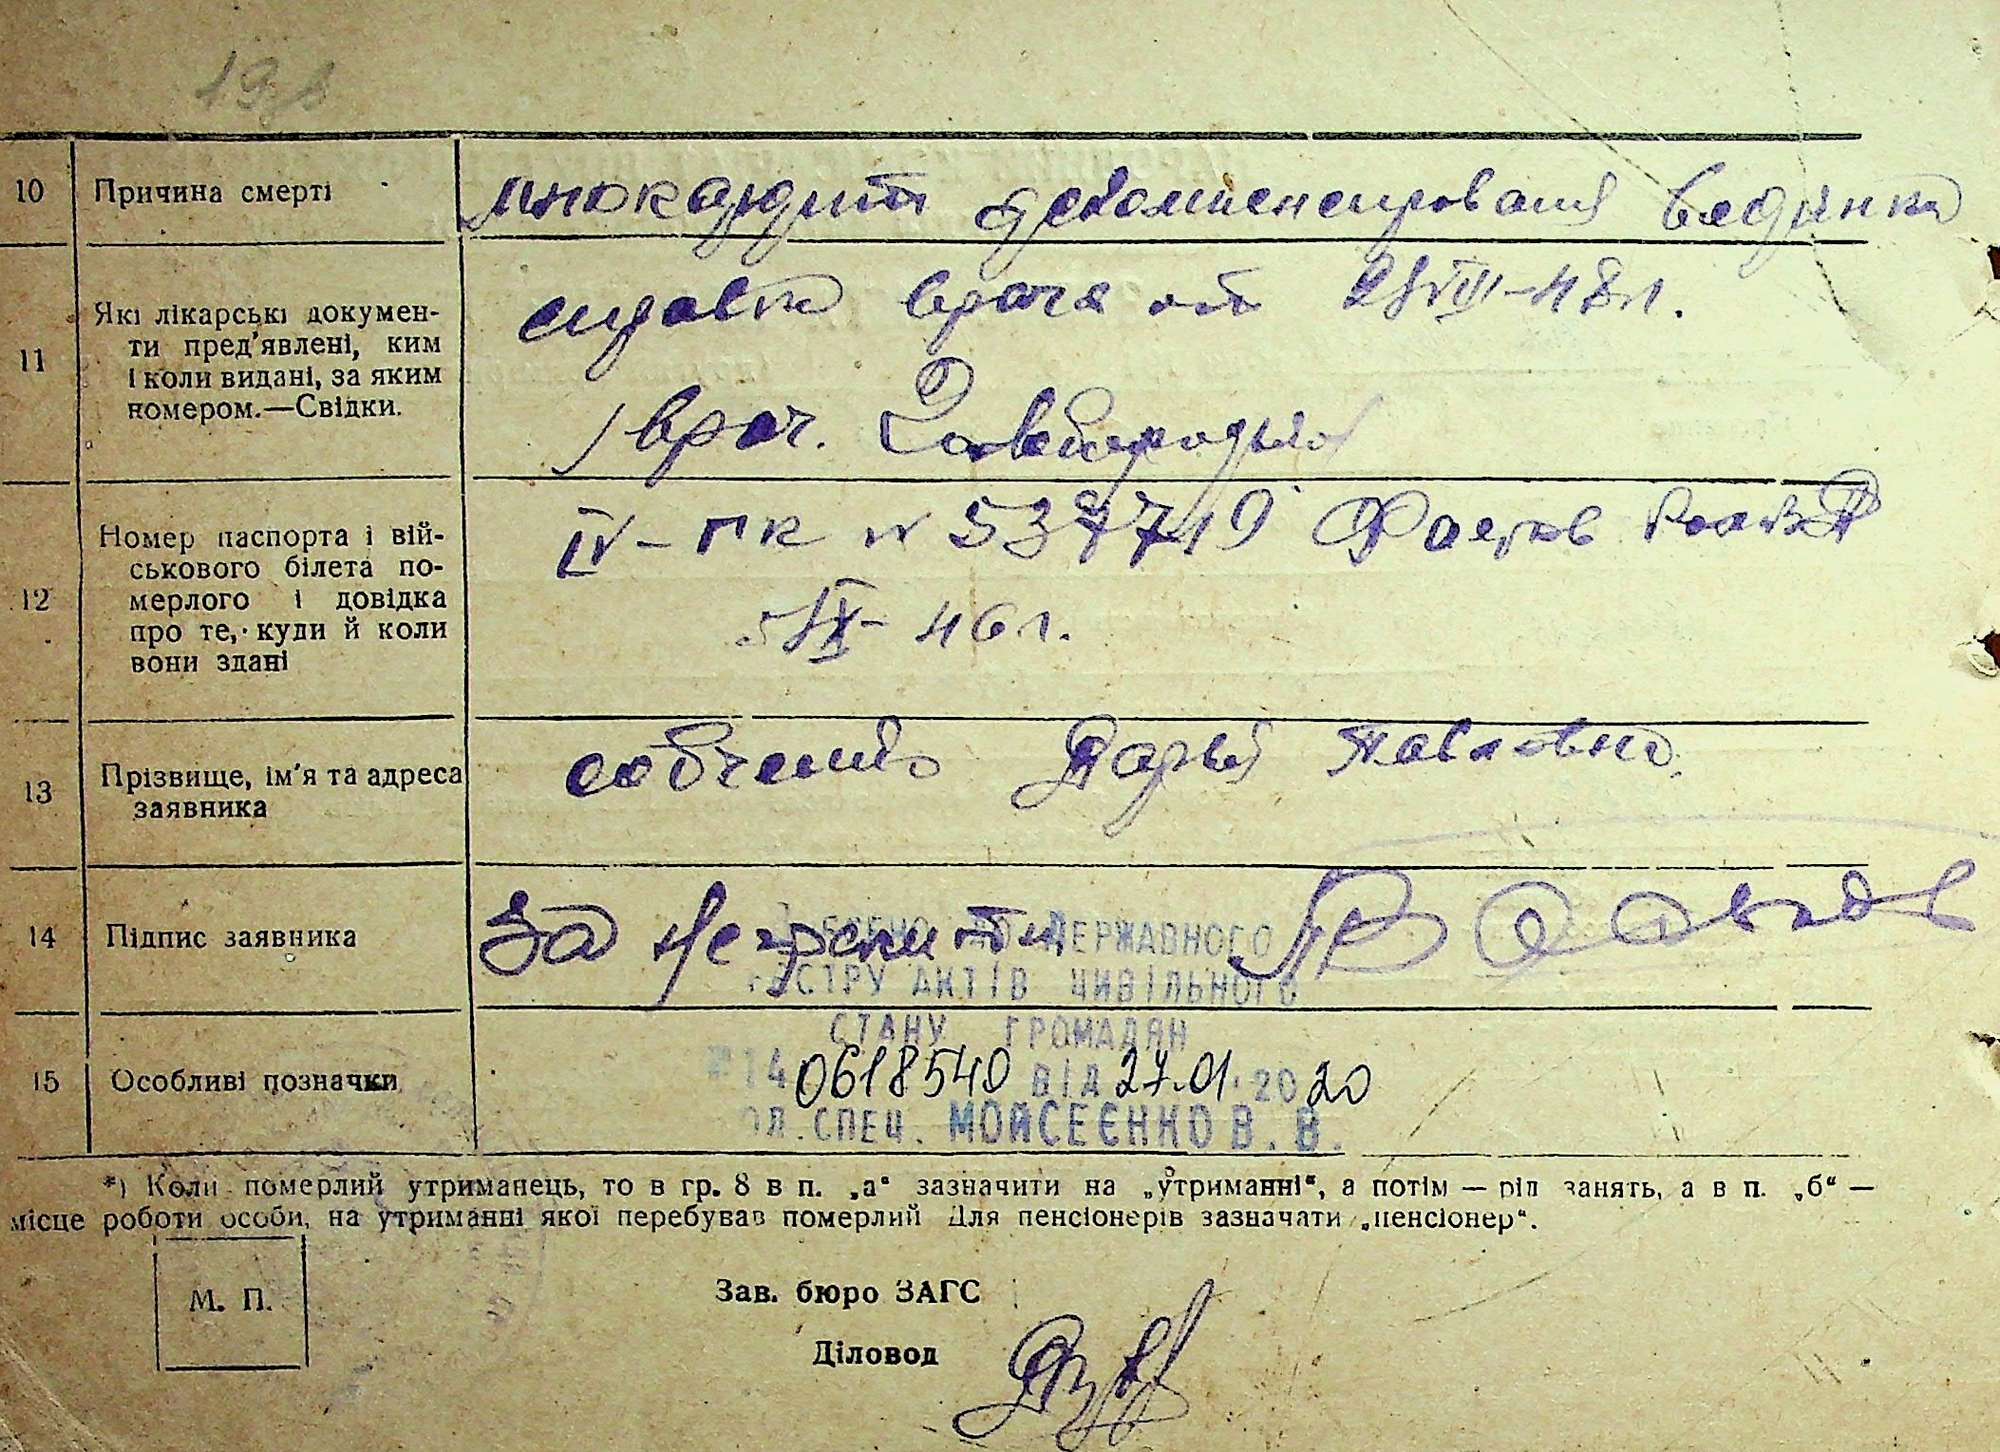 10 Причина смерті миокардит декомпенсирования водянка
11 Які лікарські докумен-
ти пред'явлені, ким
і коли видані, за яким
номером.—Свідки.
врача от VIII-48г.
врач.
12 Номер паспорта і вій-
ськового білета по-
мерлого і довідка
про те, куди й коли
вони здані
IV-ПК N
IX-46г.
13 Прізвище, ім'я та адреса
заявника
Дарья Павловна
14 Підпис заявника За
ДЕРЖАВНОГО
РЕЄСТРУ АКТІВ ЦИВІЛЬНОГО
СТАНУ ГРОМАДЯН
15 Особливі позначки
№ 14 0618540 ВІД 27.01.2020
СПЕЦ. МОЙСЕЄНКО В. В.
*) Коли померлий утриманець, то в гр. 8 в п. „а“ зазначити на „утриманні“, а потім — рід занять, а в п. „б“ —
місце роботи особи, на утриманні якої перебував померлий Для пенсіонерів зазначати „пенсіонер“.
М. П.
Зав. бюро ЗАГС
Діловод